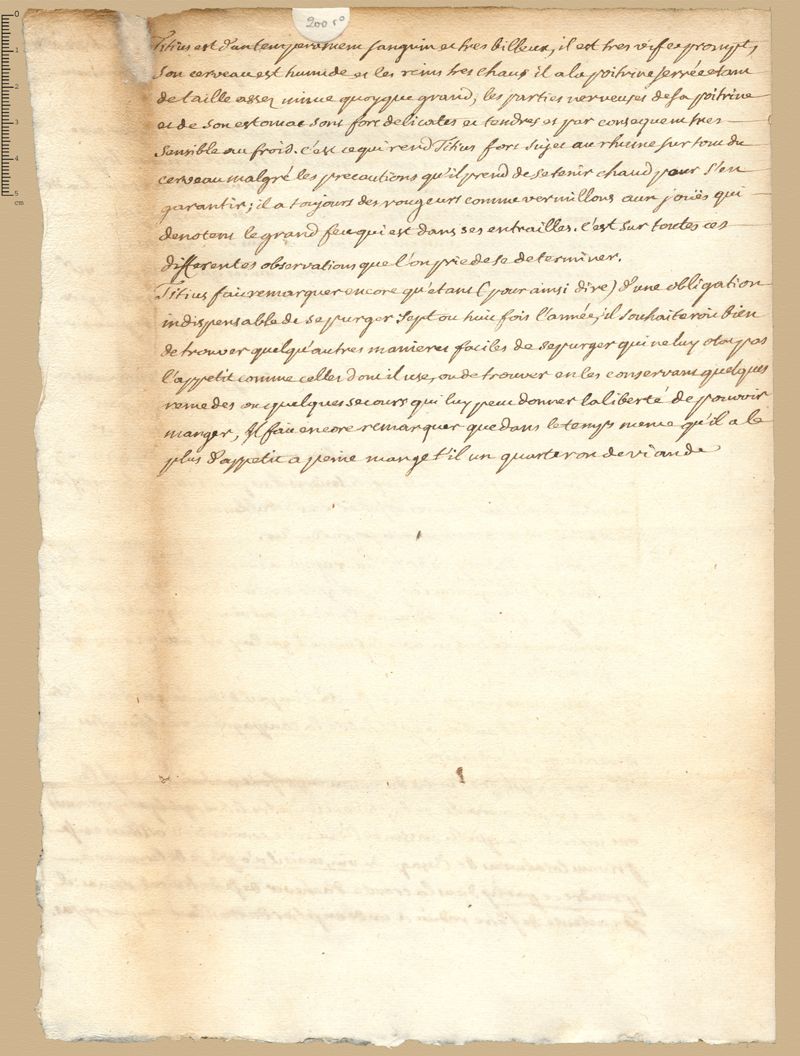 200 r°
Titius est d'un temperament sanguin et tres billeux, il est tres vif et prompt,
son cerveau est humide et les reins tres chaus il a la poitrine serrée etant
de taille assez mince quoyque grand, les parties nerveuses de sa poitrine
et de son estomac sont fort delicates et tendres et par consequent tres
sensible au froid. c'est ce qui rend Titius fort sujet au rhume sur tout du
cerveau malgré les precautions qu'il prend de se tenir chaud pour s'en
garantir; il a toujours des rougeurs comme vermillons aux joües qui
denotent le grand feu qui est dans ses entrailles. c'est sur toutes ces
differentes observations que l'on prie de se determiner.
Titius fait remarquer encore qu'etant (pour ainsi dire) d'une obligation
indispensable de se purger sept ou huit fois l'année, il souhaiteroit bien
de trouver quelqu'autres manieres faciles de se purger qui ne luy otat pas
l'appetit comme celles dont il use, ou de trouver en les conservant quelques
remedes ou quelques secours qui luy peut donner la liberté de pouvoir
manger, Il fait encore remarquer que dans le temps meme qu'il a le
plus d'appetit a peine mange t'il un quarteron de viande